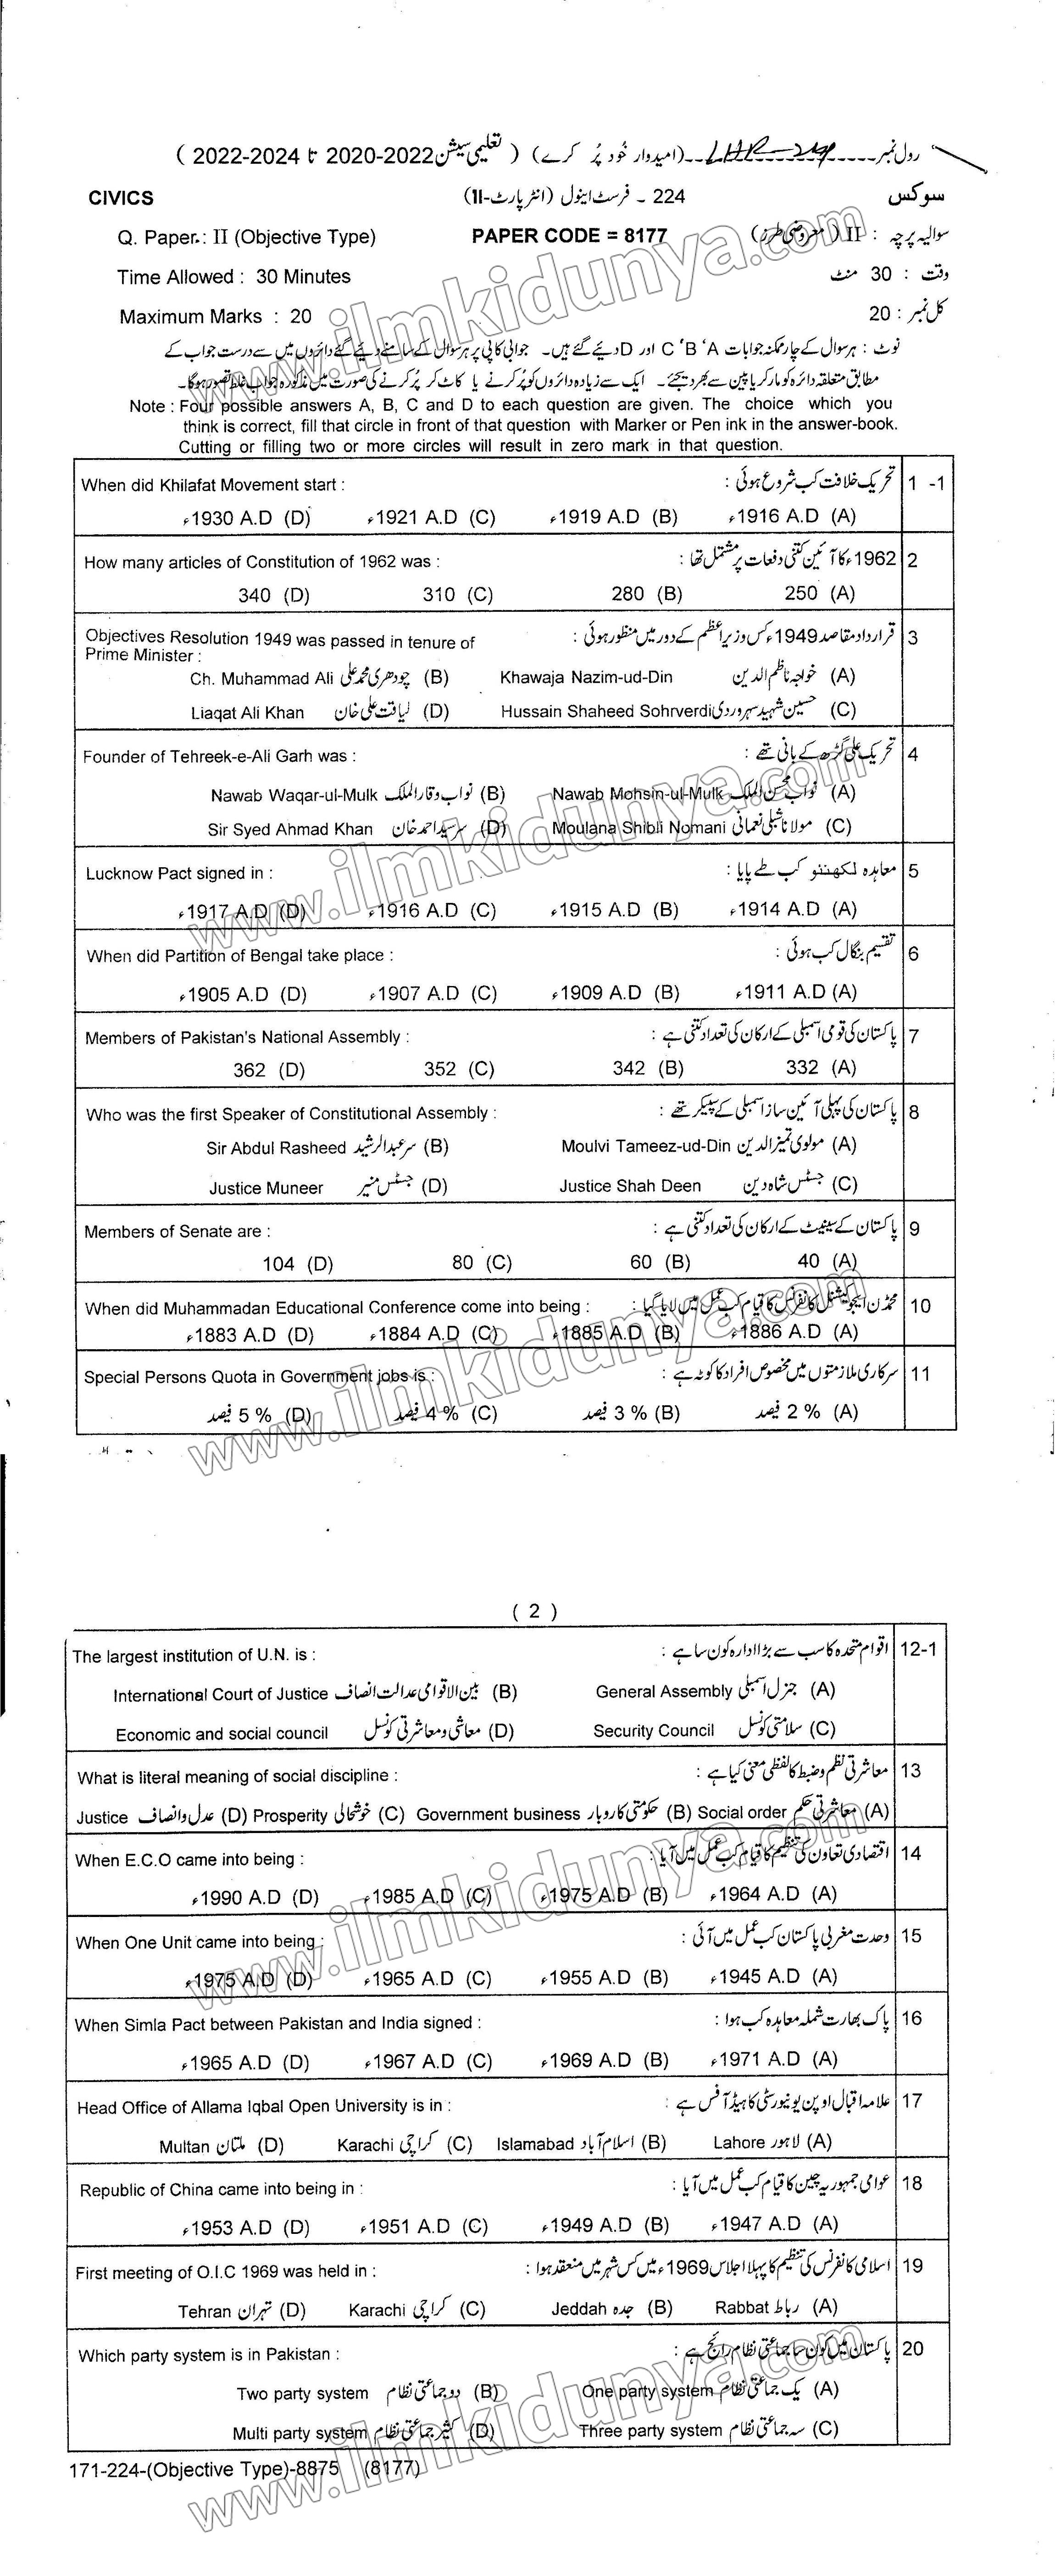 رول نمبر LHR-2-24 (امیدوار خود پُر کرے) ( تعلیمی سیشن 2020-2022 تا 2022-2024 )
CIVICS 224 ۔ فرسٹ اینول (انٹر پارٹ-II) سوکس
Q. Paper.: II (Objective Type) PAPER CODE = 8177 سوالیہ پرچہ : II (معروضی طرز)
Time Allowed : 30 Minutes وقت : 30 منٹ
Maximum Marks : 20 کل نمبر : 20
نوٹ : ہر سوال کے چار ممکنہ جوابات C ' B ' A اور D دیئے گئے ہیں۔ جوابی کاپی پر ہر سوال کے سامنے دیئے گئے دائروں میں سے درست جواب کے
مطابق متعلقہ دائرہ کو مارکر یا پین سے بھر دیجئے۔ ایک سے زیادہ دائروں کو پُر کرنے یا کاٹ کر پُر کرنے کی صورت میں مذکورہ جواب غلط تصور ہوگا۔
Note : Four possible answers A, B, C and D to each question are given. The choice which you
think is correct, fill that circle in front of that question with Marker or Pen ink in the answer-book.
Cutting or filling two or more circles will result in zero mark in that question.
When did Khilafat Movement start : تحریک خلافت کب شروع ہوئی : 1 -1
ء1930 A.D (D) ء1921 A.D (C) ء1919 A.D (B) ء1916 A.D (A)
How many articles of Constitution of 1962 was : 1962ء کا آئین کتنی دفعات پر مشتمل تھا : 2
340 (D) 310 (C) 280 (B) 250 (A)
Objectives Resolution 1949 was passed in tenure of قرارداد مقاصد 1949ء کس وزیراعظم کے دور میں منظور ہوئی : 3
Prime Minister :
Ch. Muhammad Ali چودھری محمد علی (B) Khawaja Nazim-ud-Din خواجہ ناظم الدین (A)
Liaqat Ali Khan لیاقت علی خان (D) Hussain Shaheed Sohrverdi حسین شہید سہروردی (C)
Founder of Tehreek-e-Ali Garh was : تحریک علی گڑھ کے بانی تھے : 4
Nawab Waqar-ul-Mulk نواب وقار الملک (B) Nawab Mohsin-ul-Mulk نواب محسن الملک (A)
Sir Syed Ahmad Khan سر سید احمد خان (D) Moulana Shibli Nomani مولانا شبلی نعمانی (C)
Lucknow Pact signed in : معاہدہ لکھنئو کب طے پایا : 5
ء1917 A.D (D) ء1916 A.D (C) ء1915 A.D (B) ء1914 A.D (A)
When did Partition of Bengal take place : تقسیم بنگال کب ہوئی : 6
ء1905 A.D (D) ء1907 A.D (C) ء1909 A.D (B) ء1911 A.D (A)
Members of Pakistan's National Assembly : پاکستان کی قومی اسمبلی کے ارکان کی تعداد کتنی ہے : 7
362 (D) 352 (C) 342 (B) 332 (A)
Who was the first Speaker of Constitutional Assembly : پاکستان کی پہلی آئین ساز اسمبلی کے سپیکر تھے : 8
Sir Abdul Rasheed سر عبدالرشید (B) Moulvi Tameez-ud-Din مولوی تمیز الدین (A)
Justice Muneer جسٹس منیر (D) Justice Shah Deen جسٹس شاہ دین (C)
Members of Senate are : پاکستان کے سینیٹ کے ارکان کی تعداد کتنی ہے : 9
104 (D) 80 (C) 60 (B) 40 (A)
When did Muhammadan Educational Conference come into being : محمڈن ایجوکیشنل کانفرنس کا قیام کب عمل میں لایا گیا : 10
ء1883 A.D (D) ء1884 A.D (C) ء1885 A.D (B) ء1886 A.D (A)
Special Persons Quota in Government jobs is : سرکاری ملازمتوں میں مخصوص افراد کا کوٹہ ہے : 11
5 % فیصد (D) 4 % فیصد (C) 3 % فیصد (B) 2 % فیصد (A)
( 2 )
The largest institution of U.N. is : اقوام متحدہ کا سب سے بڑا ادارہ کون سا ہے : 12-1
International Court of Justice بین الاقوامی عدالت انصاف (B) General Assembly جنرل اسمبلی (A)
Economic and social council معاشی و معاشرتی کونسل (D) Security Council سلامتی کونسل (C)
What is literal meaning of social discipline : معاشرتی نظم و ضبط کا لفظی معنی کیا ہے : 13
Justice عدل و انصاف (D) Prosperity خوشحالی (C) Government business حکومتی کاروبار (B) Social order معاشرتی حکم (A)
When E.C.O came into being : اقتصادی تعاون کی تنظیم کا قیام کب عمل میں آیا : 14
ء1990 A.D (D) ء1985 A.D (C) ء1975 A.D (B) ء1964 A.D (A)
When One Unit came into being : وحدت مغربی پاکستان کب عمل میں آئی : 15
ء1975 A.D (D) ء1965 A.D (C) ء1955 A.D (B) ء1945 A.D (A)
When Simla Pact between Pakistan and India signed : پاک بھارت شملہ معاہدہ کب ہوا : 16
ء1965 A.D (D) ء1967 A.D (C) ء1969 A.D (B) ء1971 A.D (A)
Head Office of Allama Iqbal Open University is in : علامہ اقبال اوپن یونیورسٹی کا ہیڈ آفس ہے : 17
Multan ملتان (D) Karachi کراچی (C) Islamabad اسلام آباد (B) Lahore لاہور (A)
Republic of China came into being in : عوامی جمہوریہ چین کا قیام کب عمل میں آیا : 18
ء1953 A.D (D) ء1951 A.D (C) ء1949 A.D (B) ء1947 A.D (A)
First meeting of O.I.C 1969 was held in : اسلامی کانفرنس کی تنظیم کا پہلا اجلاس 1969ء میں کس شہر میں منعقد ہوا : 19
Tehran تہران (D) Karachi کراچی (C) Jeddah جدہ (B) Rabbat رباط (A)
Which party system is in Pakistan : پاکستان میں کون سا جماعتی نظام رائج ہے : 20
Two party system دو جماعتی نظام (B) One party system یک جماعتی نظام (A)
Multi party system کثیر جماعتی نظام (D) Three party system سہ جماعتی نظام (C)
171-224-(Objective Type)-8875 (8177)
www.ilmkidunya.com
www.ilmkidunya.com
www.ilmkidunya.com
www.ilmkidunya.com
www.ilmkidunya.com